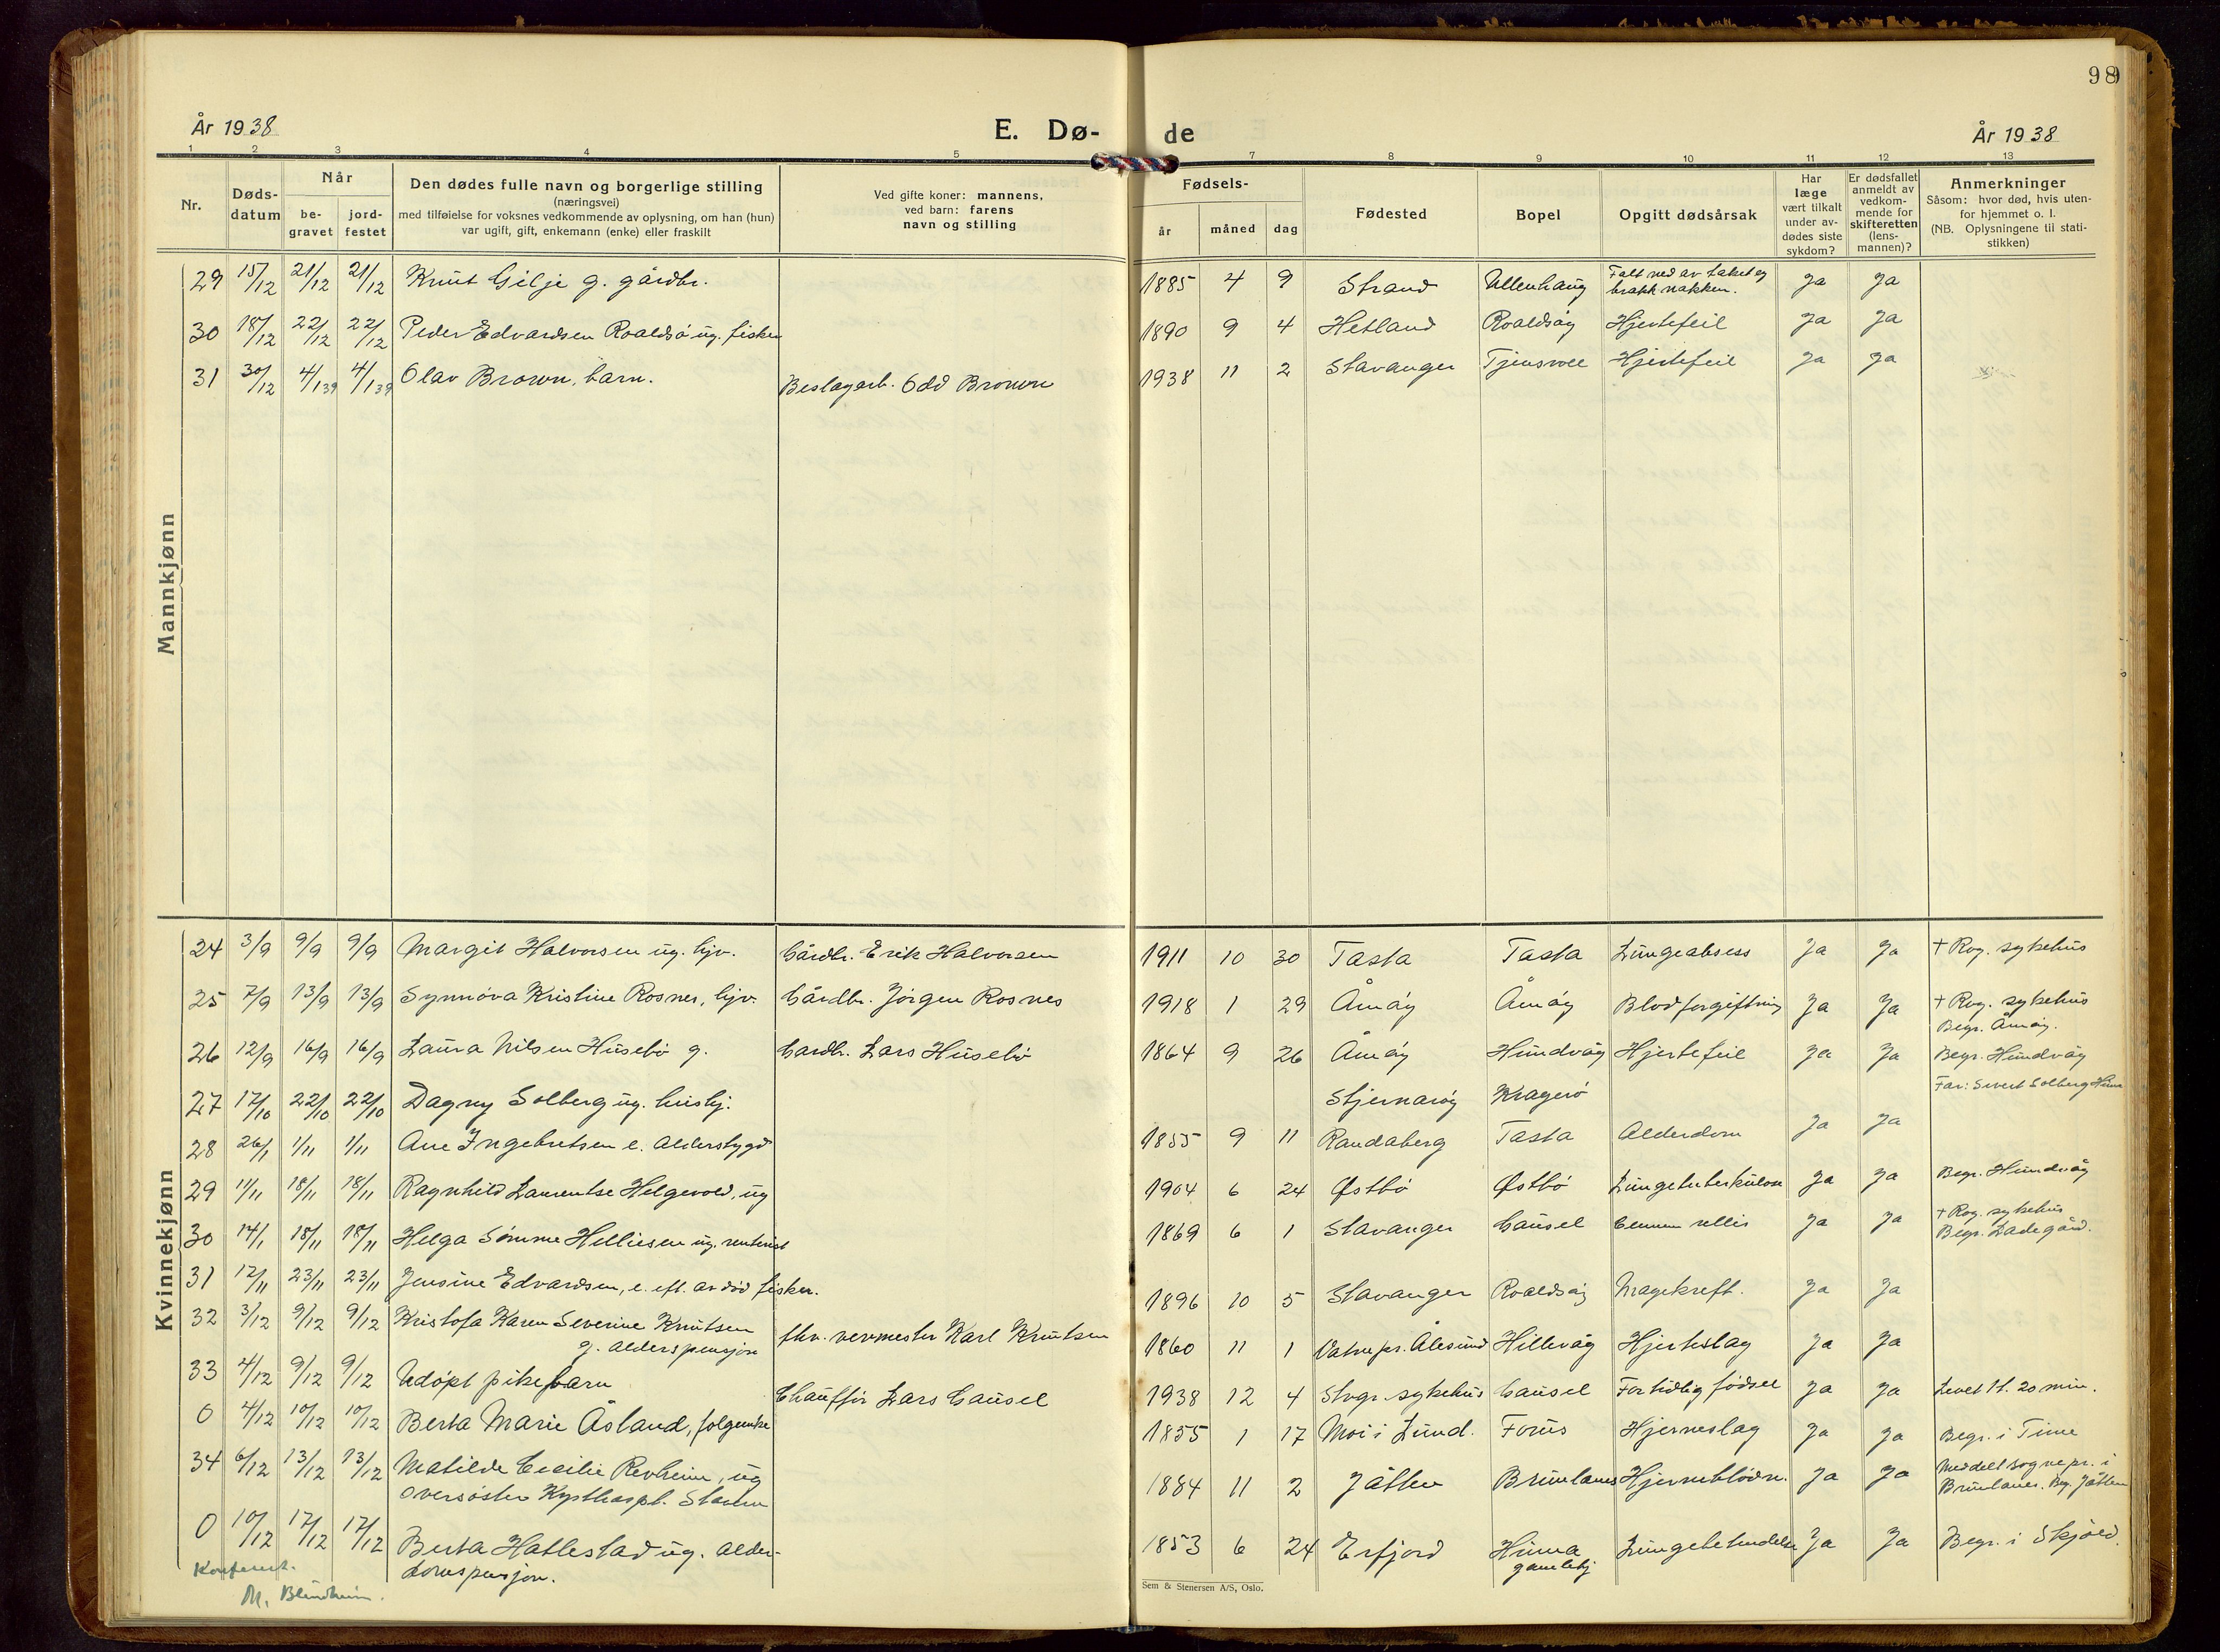 98
År 1938 E. Dø- de År 1938
1 2 3 4 5 7 8 9 10 11 12 13
Nr.
Døds-datum
Når
be-gravet
jord-festet
Den dødes fulle navn og borgerlige stilling
(næringsvei)
med tilføielse for voksnes vedkommende av oplysning, om han (hun)
var ugift, gift, enkemann (enke) eller fraskilt
Ved gifte koner: mannens,
ved barn: farens
navn og stilling
Fødsels-
år måned dag
Fødested
Bopel
Opgitt dødsårsak
Har
læge
vært tilkalt
under av-
dødes siste
sykdom?
Er dødsfallet
anmeldt av
vedkom-
mende for
skifteretten
(lens-
mannen)?
Anmerkninger
Såsom: hvor død, hvis uten-
for hjemmet o. l.
(NB. Oplysningene til stati-
stikken)
Mannkjønn
29 15/12 21/12 21/12 Knut Gilje g. gårdbr. 1885 4 9 Strand Ullenhaug Falt ned av taket og brakk nakken. Ja Ja
30 18/12 22/12 22/12 Peder Edvardsen Roaldsö ug. fisker 1890 9 4 Hetland Roaldsöy Hjertefeil Ja Ja
31 30/12 4/1 39 4/1 39 Olav Brown, barn. Beslagarb. Odd Brown 1938 11 2 Stavanger Tjensvoll Hjertefeil Ja Ja
Kvinnekjønn
24 3/9 9/9 9/9 Margit Halvorsen ug. hjv. Gårdbr. Erik Halvorsen 1911 10 30 Tasta Tasta Lungeabsess Ja Ja + Rog. sykehus
25 7/9 13/9 13/9 Synnöva Kristine Rosnes, hjv. Gårdbr. Jörgen Rosnes 1918 1 29 Åmöy Åmöy Blodforgiftning Ja Ja + Rog. sykehus
Begr. Åmöy.
26 12/9 16/9 16/9 Laura Nilsen Husebö g. Gardbr. Lars Husebö 1864 9 26 Åmöy Hundvåg Hjertefeil Ja Ja Begr. Hundvåg
27 17/10 22/10 22/10 Dagny Solberg ug. hushj. Stjernaröy Kragerö Far: Sivert Solberg
28 26/1 1/11 1/11 Ane Ingebretsen e. alderstygd 1855 9 11 Randaberg Tasta Alderdom Ja Ja
29 11/11 18/11 18/11 Ragnhild Laurentse Helgevold, ug 1904 6 24 Østbö Østbö Lungetuberkulose Ja Ja Begr. Hundvåg
30 14/1 18/11 18/11 Helga Sömme Helliesen ug. rentenist 1869 6 1 Stavanger Gausel Ja Ja + Rog. sykehus
Begr. Ladegård.
31 17/11 23/11 23/11 Jensine Edvardsen, e. eft. av död fisker. 1896 10 5 Stavanger Roaldsöy Magekreft. Ja Ja
32 3/12 9/12 9/12 Kristofa Karen Severine Knutsen
g. alderspensjon fhv. vermester Karl Knutsen 1860 11 1 Vatne pr. Ålesund Hillevåg Hjerteslag Ja Ja
33 4/12 9/12 9/12 Udöpt pikebarn Chaufför Lars Gausel 1938 12 4 Stvgr. sykehus Gausel For tidlig födsel Ja Ja Levet 1t. 20 min.
0 4/12 10/12 10/12 Berta Marie Åsland, folgenke 1855 1 17 Moi i Lund. Forus Hjerneslag Ja Ja Begr. i Time
34 6/12 13/12 13/12 Matilde Cecilie Revheim, ug
oversöster Kysthospt. Stavern 1884 11 2 Jåtten Brunlanes Hjerneblödn. Ja Ja Meddelt sognepr. i
Brunlanes. Begr. Jåtten
0 10/12 17/12 17/12 Berta Hatlestad ug. alder-
domspensjon. 1853 6 24 Erfjord Hinna
gamlehj Lungebetendelse Ja Ja Begr. i Skjold.
Konferert.
M. Blindheim.
Sem & Stenersen A/S, Oslo.